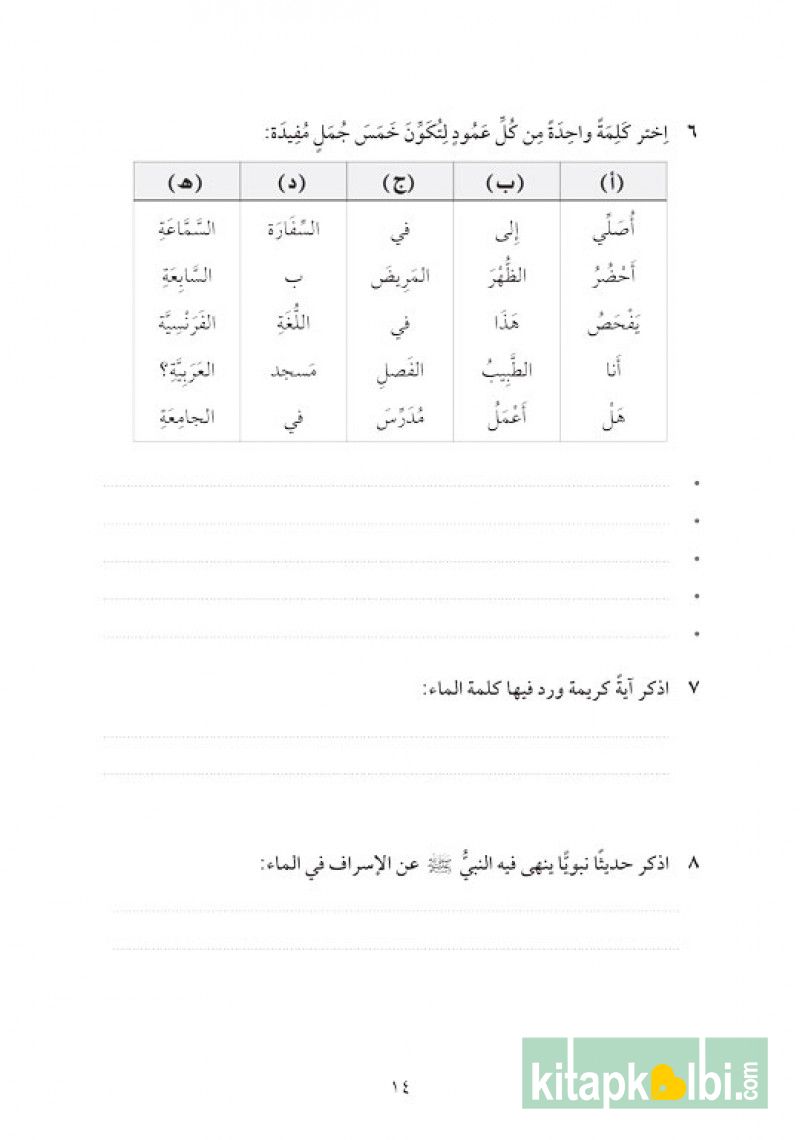 ٦ اِختر كَلِمَةً واحِدَةً مِن كُلِّ عَمُودٍ لِتُكَوِّنَ خَمَسَ جُمَلٍ مُفِيدَة:
(أ) (ب) (ج) (د) (ه)
أُصَلِّي إِلى في السِّفَارَة السَّمَّاعَةِ
أَحْضُرُ الظُّهْرَ المَرِيضَ ب السَّابِعَةِ
يَفْحَصُ هَذَا في اللُّغَةِ الفَرَنْسِيَّة
أَنا الطَّبِيبُ الفَصلِ مَسجد العَرَبِيَّةِ؟
هَلْ أَعْمَلُ مُدَرِّسَ في الجامِعَةِ
٧ اذكر آيةً كريمة ورد فيها كلمة الماء:
٨ اذكر حديثًا نبويًّا ينهى فيه النبيُّ ﷺ عن الإسراف في الماء:
١٤
kitapkalbi.com